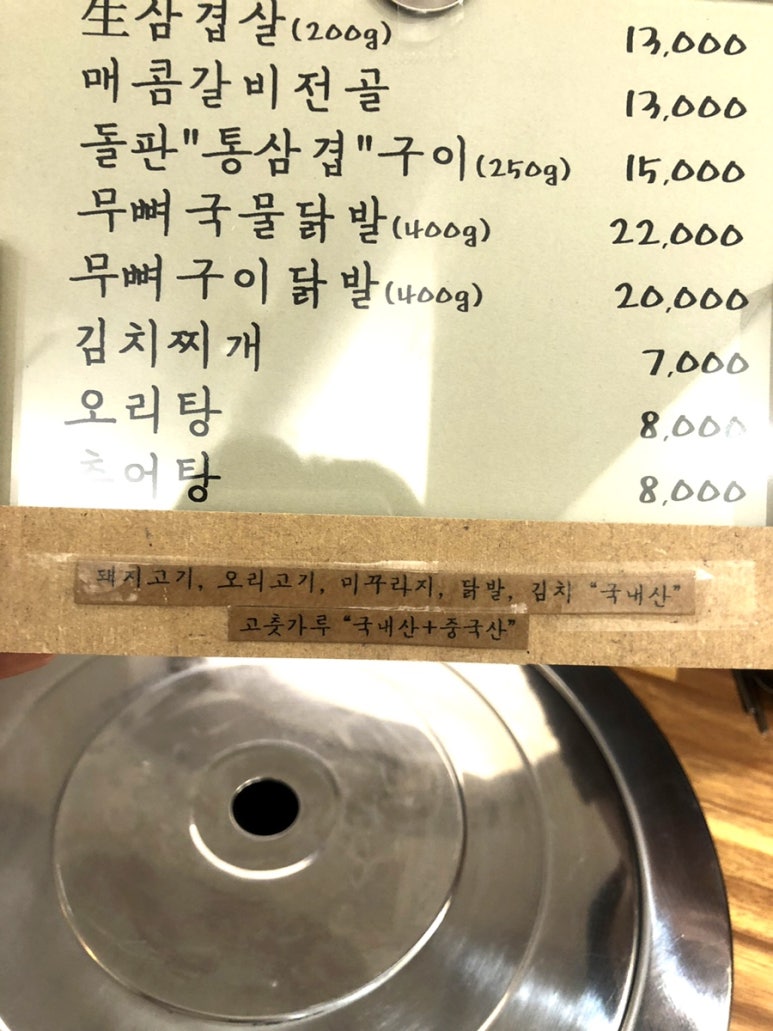 生삼겹살(200g) 13,000
매콤갈비전골 13,000
돌판"통삼겹"구이(250g) 15,000
무뼈국물닭발(400g) 22,000
무뼈구이닭발(400g) 20,000
김치찌개 7,000
오리탕 8,000
추어탕 8,000
돼지고기, 오리고기, 미꾸라지, 닭발, 김치 “국내산”
고춧가루 “국내산+중국산”